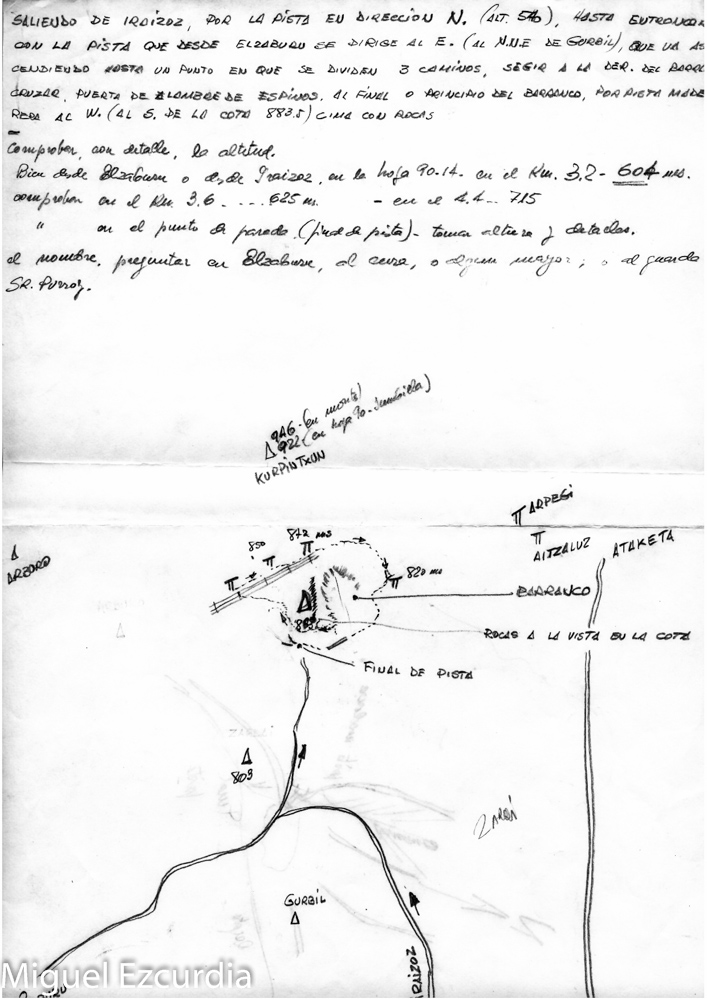 SALIENDO DE IRAIZOZ, POR LA PISTA EN DIRECCION N. (ALT. 546), HASTA ENTRONCAR
CON LA PISTA QUE DESDE ELZABURU SE DIRIGE AL E. (AL N.N.E DE GURBIL), QUE VA AS
CENDIENDO HASTA UN PUNTO EN QUE SE DIVIDEN 3 CAMINOS, SEGIR A LA DER. DEL BARRA
CRUZAR, PUERTA DE ALAMBRE DE ESPINOS. AL FINAL O PRINCIPIO DEL BARRANCO, POR PISTA MADE
RERA AL W. (AL S. DE LA COTA 883.5) CIMA CON ROCAS
Comprobar, con detalle, la altitud.
Bien desde Elzaburu o desde Iraizoz, en la hoja 90-14. en el Km. 3,2 - 604 ms.
comprobar en el Km. 3.6 .... 625 m. - en el 4.4... 715
" en el punto de parada (final de pista) - tomar altura y detalles.
el nombre, preguntar en Elzaburu, al cura, o algun mayor; o al guarda
SR.
946 - (en monte)
922 (en hoja 90 -
KURPINTXUN
ARPEGI
AITZALUZ
ATAKETA
ARZORO
850
872 ms
820 ms
BARRANCO
ROCAS A LA VISTA EN LA COTA
FINAL DE PISTA
809
ZARGI
GURBIL
IRAIZOZ
Miguel Ezcurdia